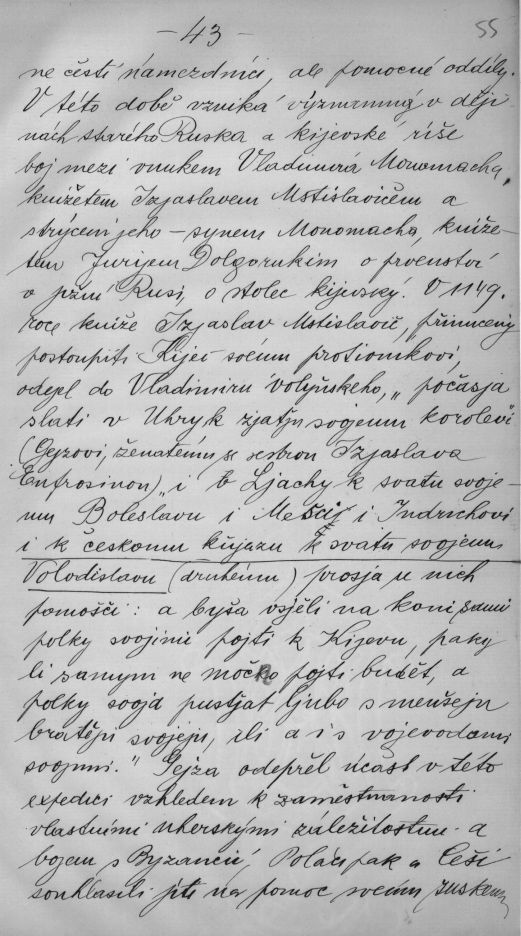 - 43 -
55
ne čeští námezdníci, ale pomocné oddíly.
V této době vzniká významný v ději-
nách starého Ruska a kijevské říše
boj mezi vnukem Vladimíra Monomacha,
knížetem Izjaslavem Mstislavičem a
strýcem jeho - synem Monomacha, kníže-
tem Jurijem Dolgorukim o prvenství
v jižní Rusi, o stolec kijevský. V 1149.
roce kníže Izjaslav Mstislavič, přinucený
postoupiti Kijev svému protivníkovi,
odepl do Vladimiru volyňského, „počasja
slati v Uhry k zjatju svojemu korolevi"
(Gejzovi, ženatému se sestrou Izjaslava
Eufrosinou) „i v Ljachy k svatu svoje-
mu Boleslavu i Mešcij i Indrichovi
i k českomu knjazu k svatu svojemu
Volodislavu (druhému) prosja u nich
pomošči: a byša vsjěli na koni sami
polky svojimi pojti k Kijevu, paky
li samym ne močno pojti budět, a
polky svoja pustjat ljubo s menšeju
bratěju svojeju, ili a i s vojevodami
svojimi." Gejza odepřěl účast v této
expedici vzhledem k zaměstnanosti
vlastními uherskými záležitostmi a
bojem s Byzancií, Poláci pak a Češi
souhlasili jíti na pomoc svému ruskému